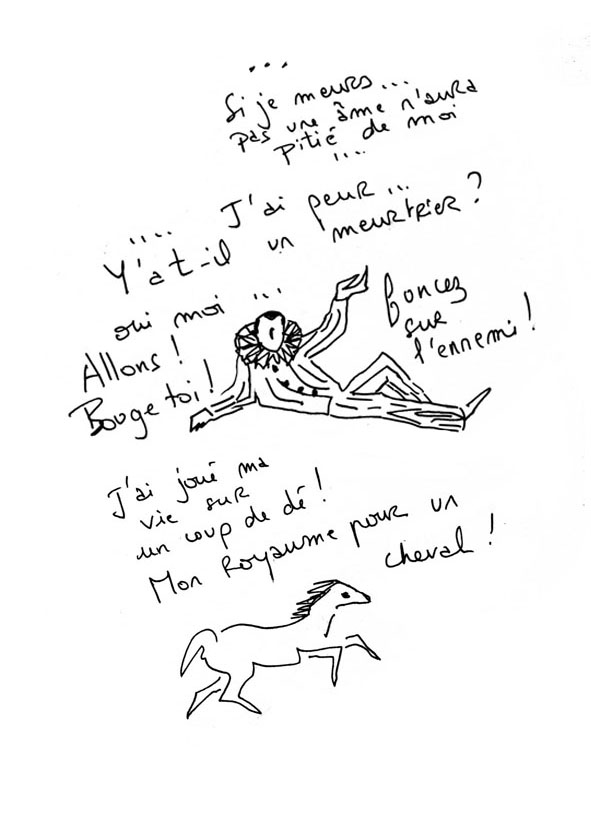 ...
Si je meurs...
pas une âme n'aura
pitié de moi
....
J'ai peur...
....
Y'a t-il un meurtrier?
oui moi ...
Allons!
Bouge toi!
foncez
sur
l'ennemi!
J'ai joué ma
vie sur
un coup de dé!
Mon Royaume pour un
cheval!